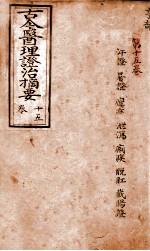 第十五卷
汗證 暑證 瘧疾 泄瀉 痢疾 脫肛
古今醫理證治摘要
卷十五